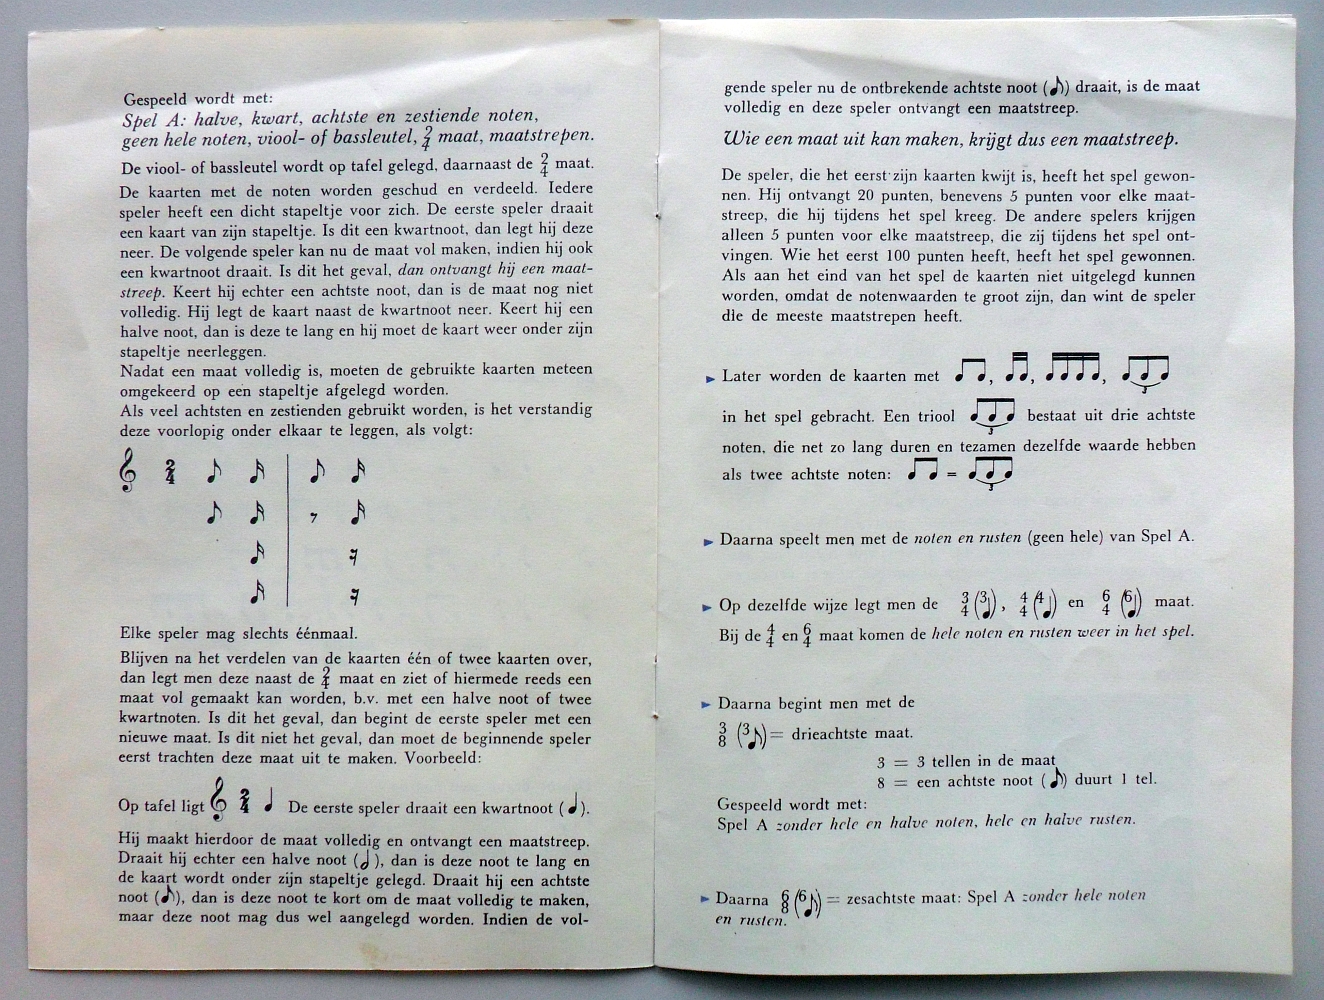 Gespeeld wordt met:
Spel A: halve, kwart, achtste en zestiende noten,
geen hele noten, viool- of bassleutel, 2/4 maat, maatstrepen.
De viool- of bassleutel wordt op tafel gelegd, daarnaast de 2/4 maat.
De kaarten met de noten worden geschud en verdeeld. Iedere
speler heeft een dicht stapeltje voor zich. De eerste speler draait
een kaart van zijn stapeltje. Is dit een kwartnoot, dan legt hij deze
neer. De volgende speler kan nu de maat vol maken, indien hij ook
een kwartnoot draait. Is dit het geval, dan ontvangt hij een maat-
streep. Keert hij echter een achtste noot, dan is de maat nog niet
volledig. Hij legt de kaart naast de kwartnoot neer. Keert hij een
halve noot, dan is deze te lang en hij moet de kaart weer onder zijn
stapeltje neerleggen.
Nadat een maat volledig is, moeten de gebruikte kaarten meteen
omgekeerd op een stapeltje afgelegd worden.
Als veel achtsten en zestienden gebruikt worden, is het verstandig
deze voorlopig onder elkaar te leggen, als volgt:
2/4
Elke speler mag slechts éénmaal.
Blijven na het verdelen van de kaarten één of twee kaarten over,
dan legt men deze naast de 2/4 maat en ziet of hiermede reeds een
maat vol gemaakt kan worden, b.v. met een halve noot of twee
kwartnoten. Is dit het geval, dan begint de eerste speler met een
nieuwe maat. Is dit niet het geval, dan moet de beginnende speler
eerst trachten deze maat uit te maken. Voorbeeld:
Op tafel ligt 𝄞 2/4 ♩ De eerste speler draait een kwartnoot (♩).
Hij maakt hierdoor de maat volledig en ontvangt een maatstreep.
Draait hij echter een halve noot (𝅗𝅥), dan is deze noot te lang en
de kaart wordt onder zijn stapeltje gelegd. Draait hij een achtste
noot (♪), dan is deze noot te kort om de maat volledig te maken,
maar deze noot mag dus wel aangelegd worden. Indien de vol-
gende speler nu de ontbrekende achtste noot (♪) draait, is de maat
volledig en deze speler ontvangt een maatstreep.
Wie een maat uit kan maken, krijgt dus een maatstreep.
De speler, die het eerst zijn kaarten kwijt is, heeft het spel gewon-
nen. Hij ontvangt 20 punten, benevens 5 punten voor elke maat-
streep, die hij tijdens het spel kreeg. De andere spelers krijgen
alleen 5 punten voor elke maatstreep, die zij tijdens het spel ont-
vingen. Wie het eerst 100 punten heeft, heeft het spel gewonnen.
Als aan het eind van het spel de kaarten niet uitgelegd kunnen
worden, omdat de notenwaarden te groot zijn, dan wint de speler
die de meeste maatstrepen heeft.
► Later worden de kaarten met ♫, ♬, , 3
in het spel gebracht. Een triool 3 bestaat uit drie achtste
noten, die net zo lang duren en tezamen dezelfde waarde hebben
als twee achtste noten: ♫ = 3
► Daarna speelt men met de noten en rusten (geen hele) van Spel A.
► Op dezelfde wijze legt men de 3/4 (3♩), 4/4 (4♩) en 6/4 (6♩) maat.
Bij de 4/4 en 6/4 maat komen de hele noten en rusten weer in het spel.
► Daarna begint men met de
3/8 (3♪) = drieachtste maat.
3 = 3 tellen in de maat
8 = een achtste noot (♪) duurt 1 tel.
Gespeeld wordt met:
Spel A zonder hele en halve noten, hele en halve rusten.
► Daarna 6/8 (6♪) = zesachtste maat: Spel A zonder hele noten
en rusten.